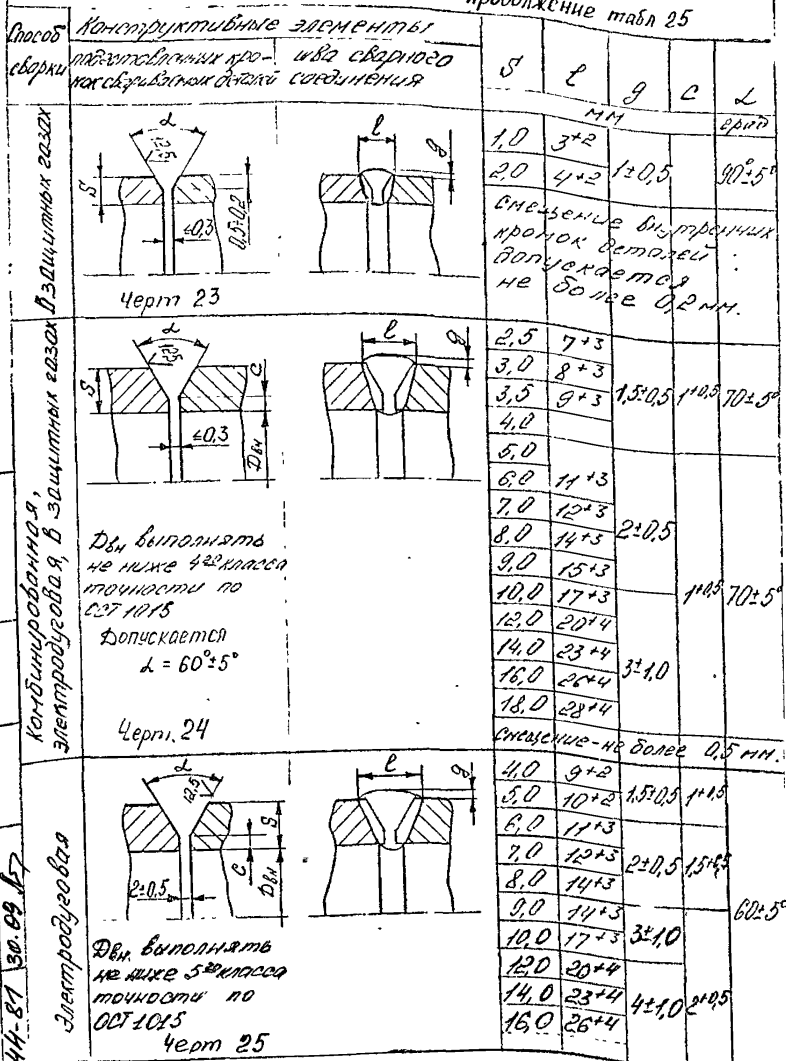 Продолжение табл 25
Способ сварки
Конструктивные элементы
подготовленных кро-
мок свариваемых деталей
шва сварного
соединения
S l g c α
мм град
В защитных газах
α
12,5
S
≤0,3
0,5±0,2
l
g
Черт 23
1,0 3+2
2,0 4+2 1±0,5 90°±5°
Смещение внутренних
кромок деталей
допускается
не более 0,2 мм.
Комбинированная,
электродуговая, в защитных газах
α
12,5
S
c
≤0,3
Dвн
l
g
Dвн выполнять
не ниже 4го класса
точности по
ОСТ 1015
Допускается
α = 60°±5°
Черт. 24
2,5 7+3
3,0 8+3
3,5 9+3 1,5±0,5 1+0,5 70±5°
4,0
5,0
6,0 11+3
7,0 12+3
8,0 14+3 2±0,5
9,0 15+3
10,0 17+3 1+0,5 70±5°
12,0 20+4
14,0 23+4
16,0 26+4 3±1,0
18,0 28+4
Смещение-не более 0,5 мм.
Электродуговая
α
12,5
S
c
2±0,5
Dвн
l
g
Dвн. выполнять
не ниже 5го класса
точности по
ОСТ 1015
Черт 25
4,0 9+2
5,0 10+2 1,5±0,5 1+0,5
6,0 11+3
7,0 12+3 2±0,5 1,5+0,5
8,0 14+3
9,0 14+3 60±5°
10,0 17+3 3±1,0
12,0 20+4
14,0 23+4 4±1,0 2+0,5
16,0 26+4
44-81 30.09